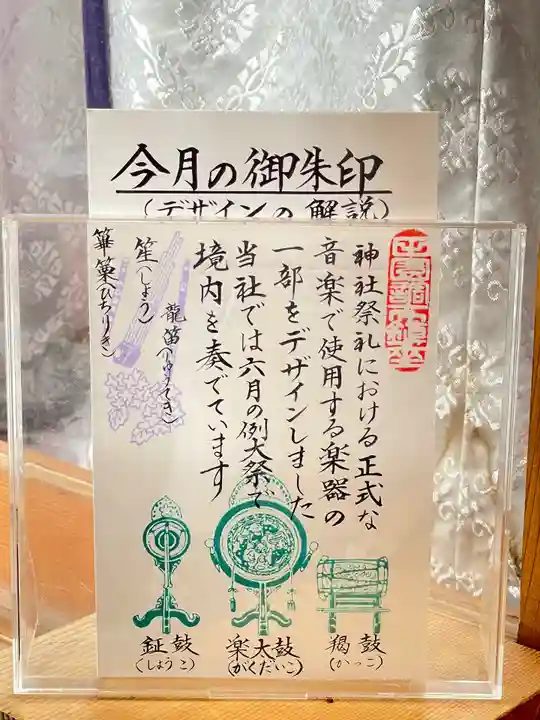 今月の御朱印
(デザインの解説)
神社祭礼における正式な
音楽で使用する楽器の
一部をデザインしました
当社では六月の例大祭で
境内を奏でています
龍笛(りゅうてき)
笙(しょう)
篳篥(ひちりき)
鉦鼓
(しょうこ)
楽太鼓
(がくだいこ)
羯鼓
(かっこ)